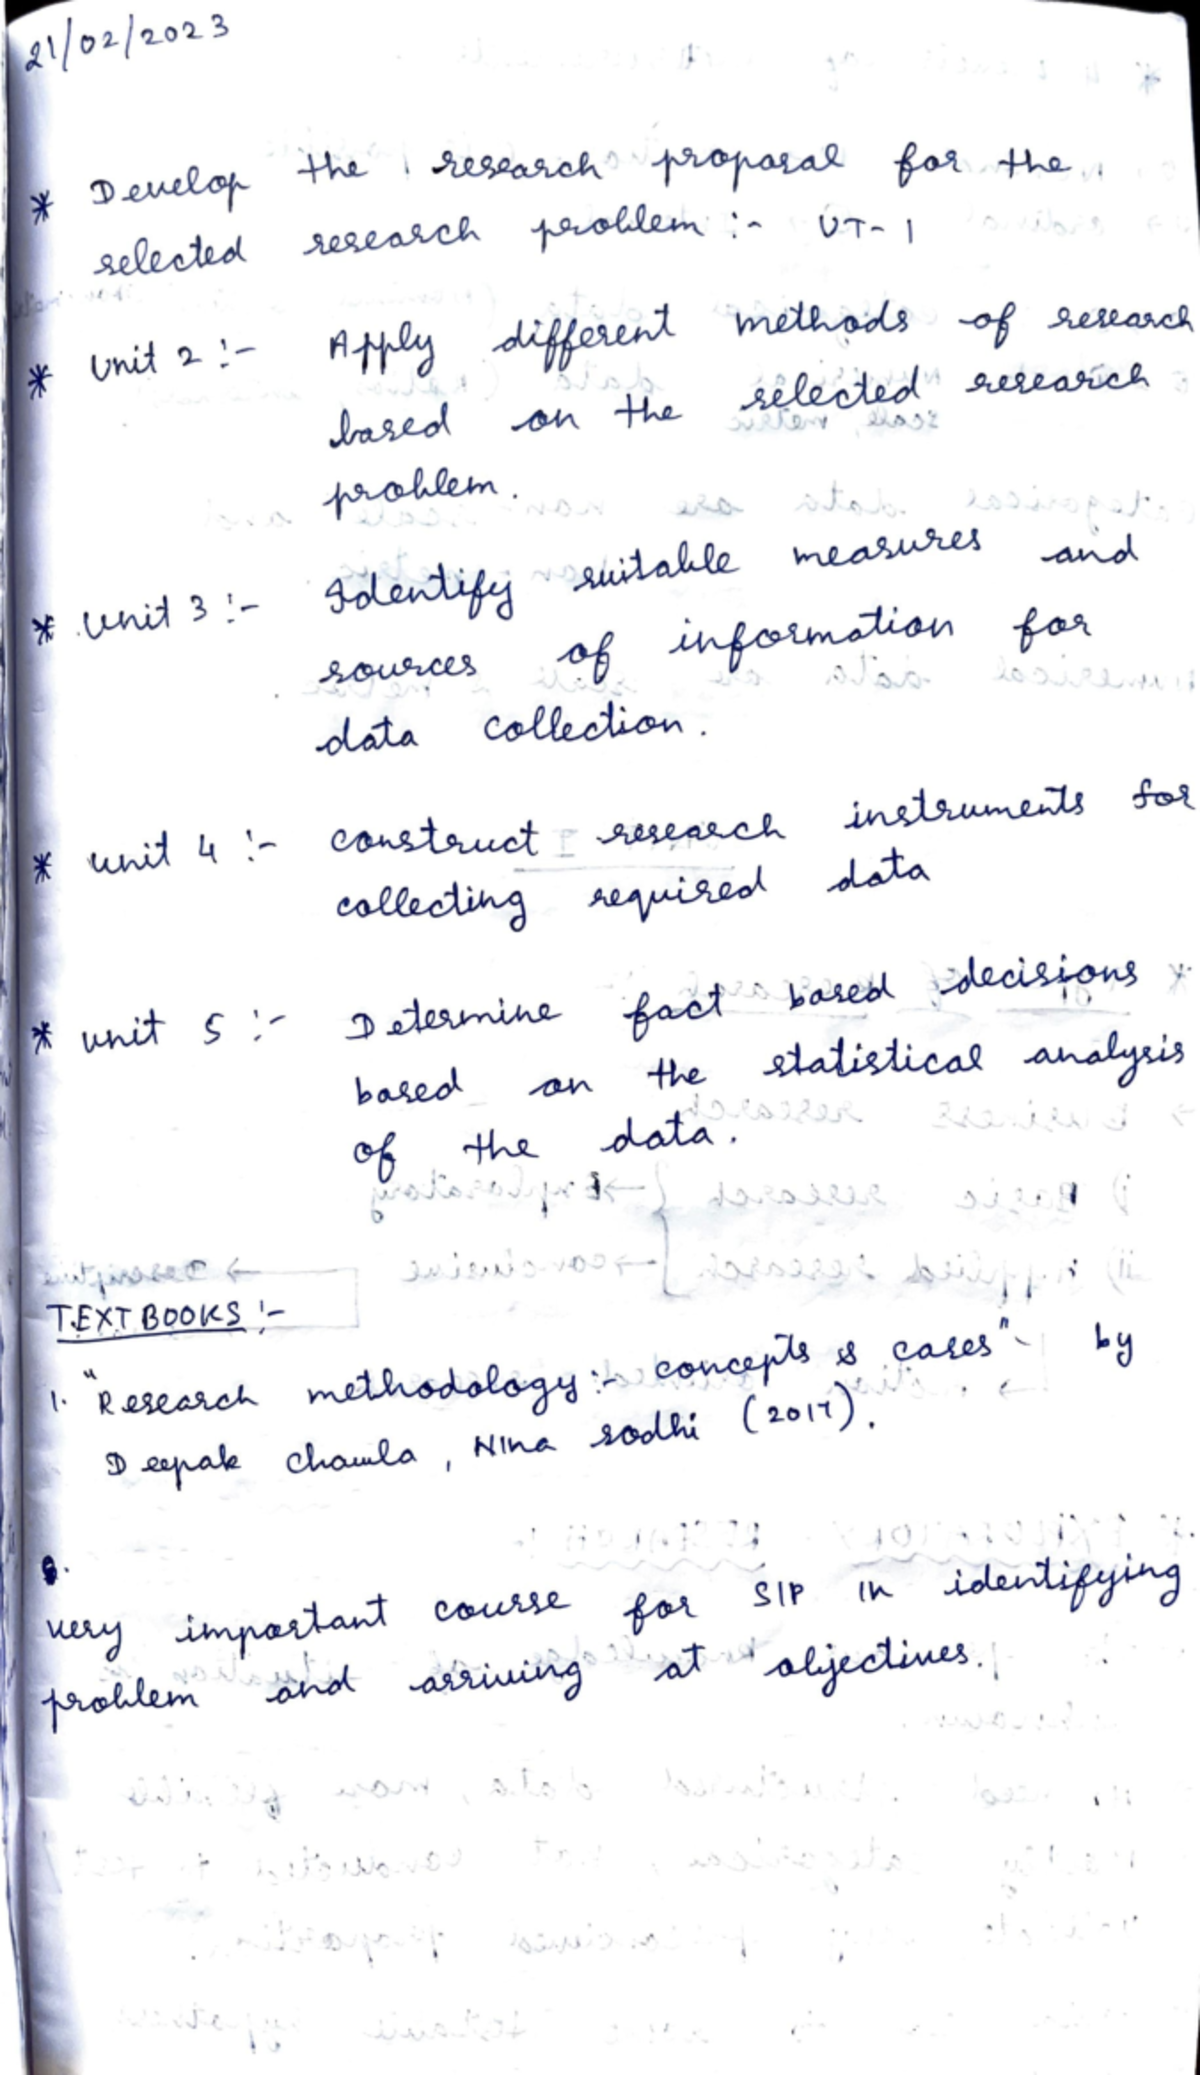 21/02/2023
* Develop the research proposal for the
selected research problem :- UT-1
* Unit 2 :- Apply different methods of research
based on the selected research
problem.
* Unit 3 :- Identify suitable measures and
sources of information for
data collection.
* Unit 4 :- construct research instruments for
collecting required data
* Unit 5 :- Determine fact based decisions
based on the statistical analysis
of the data.
TEXT BOOKS :-
1. "Research methodology :- concepts & cases" - by
Deepak chawla, Nina sodhi (2017).
very important course for SIP in identifying
problem and arriving at objectives.